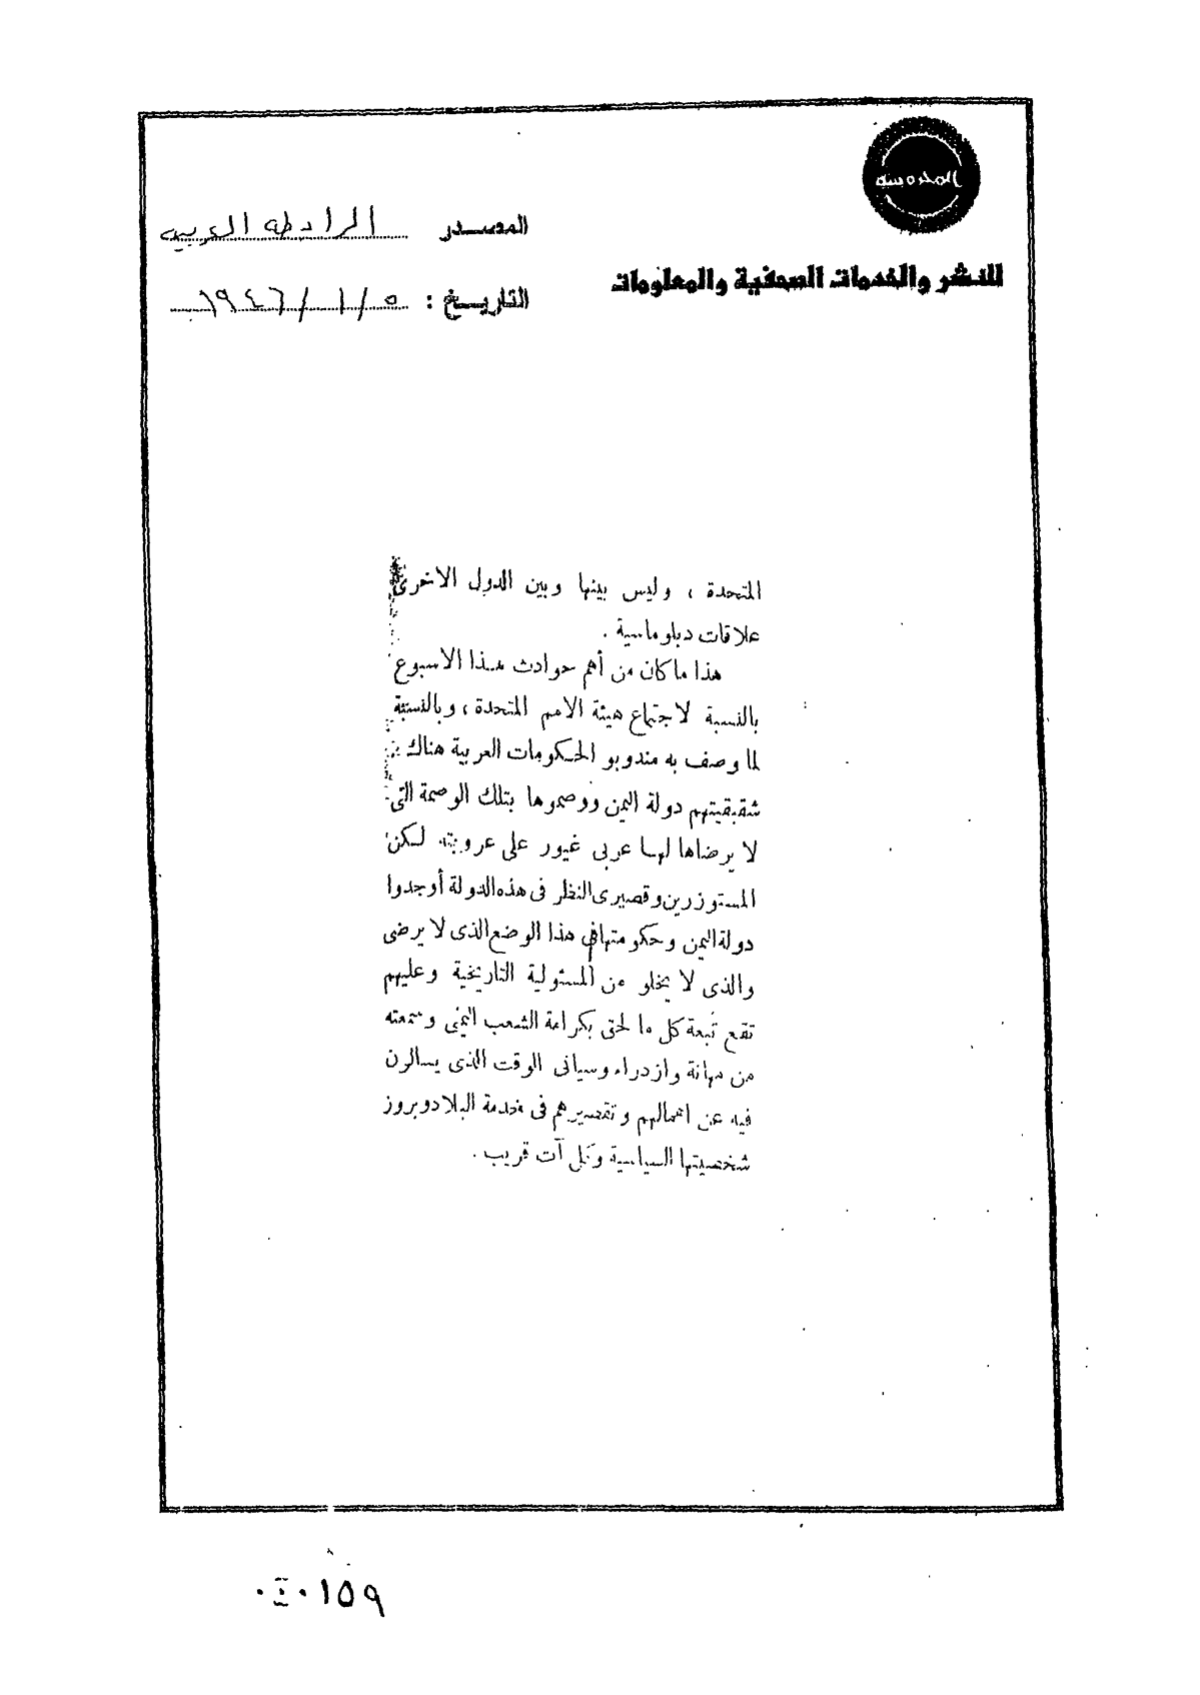 المحروسة
للنشر والخدمات الصحفية والمعلومات
المصدر الرابطه العربيه
التاريخ : ٥ / ١ / ١٩٤٦
المتحدة ، وليس بينها وبين الدول الاخرى
علاقات دبلوماسية .
هذا ما كان من أهم حوادث هذا الاسبوع
بالنسبة لاجتماع هيئة الامم المتحدة ، وبالنسبة
لما وصف به مندوبو الحكومات العربية هناك
شقيقيتهم دولة اليمن ووصموها بتلك الوصمة التى
لا يرضاها لها عربى غيور على عروبته لكن
المستوزرين وقصيرى النظر فى هذه الدولة أوجدوا
دولة اليمن وحكومتها فى هذا الوضع الذى لا يرضى
والذى لا يخلو من المسئولية التاريخية وعليهم
تقع تبعة كل ما لحق بكرامة الشعب اليمنى وسمعته
من مهانة وازدراء وسيأتى الوقت الذى يسالون
فيه عن اعمالهم وتقصيرهم فى خدمة البلاد وبروز
شخصيتها السياسية وكل آت قريب .
١٥٩